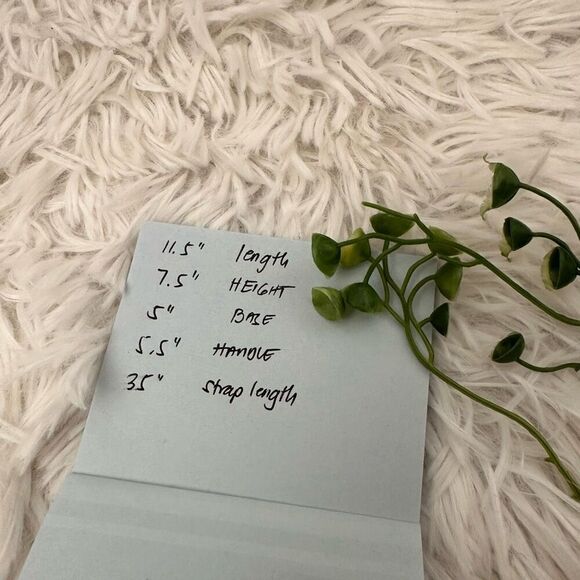 11.5" length
7.5" HEIGHT
5" BASE
5.5" HANDLE
35" Strap length